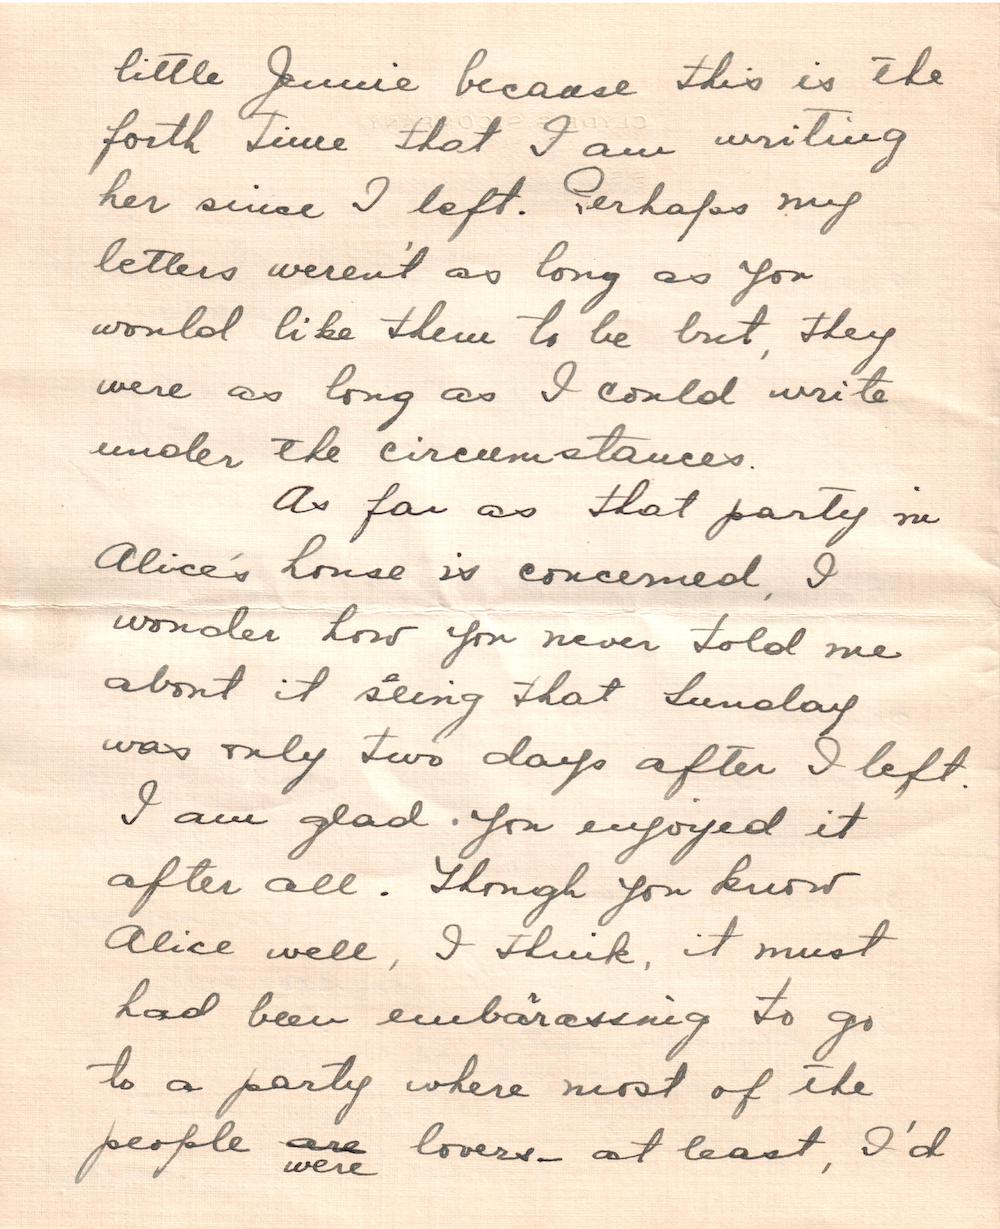 little Jennie because this is the
forth time that I am writing
her since I left. Perhaps my
letters weren't as long as you
would like them to be but, they
were as long as I could write
under the circumstances.
As far as that party in
Alice's house is concerned, I
wonder how you never told me
about it seing that Sunday
was only two days after I left.
I am glad you enjoyed it
after all. Though you know
Alice well, I think, it must
had been embarassing to go
to a party where most of the
people are lovers - at least, I'd
were